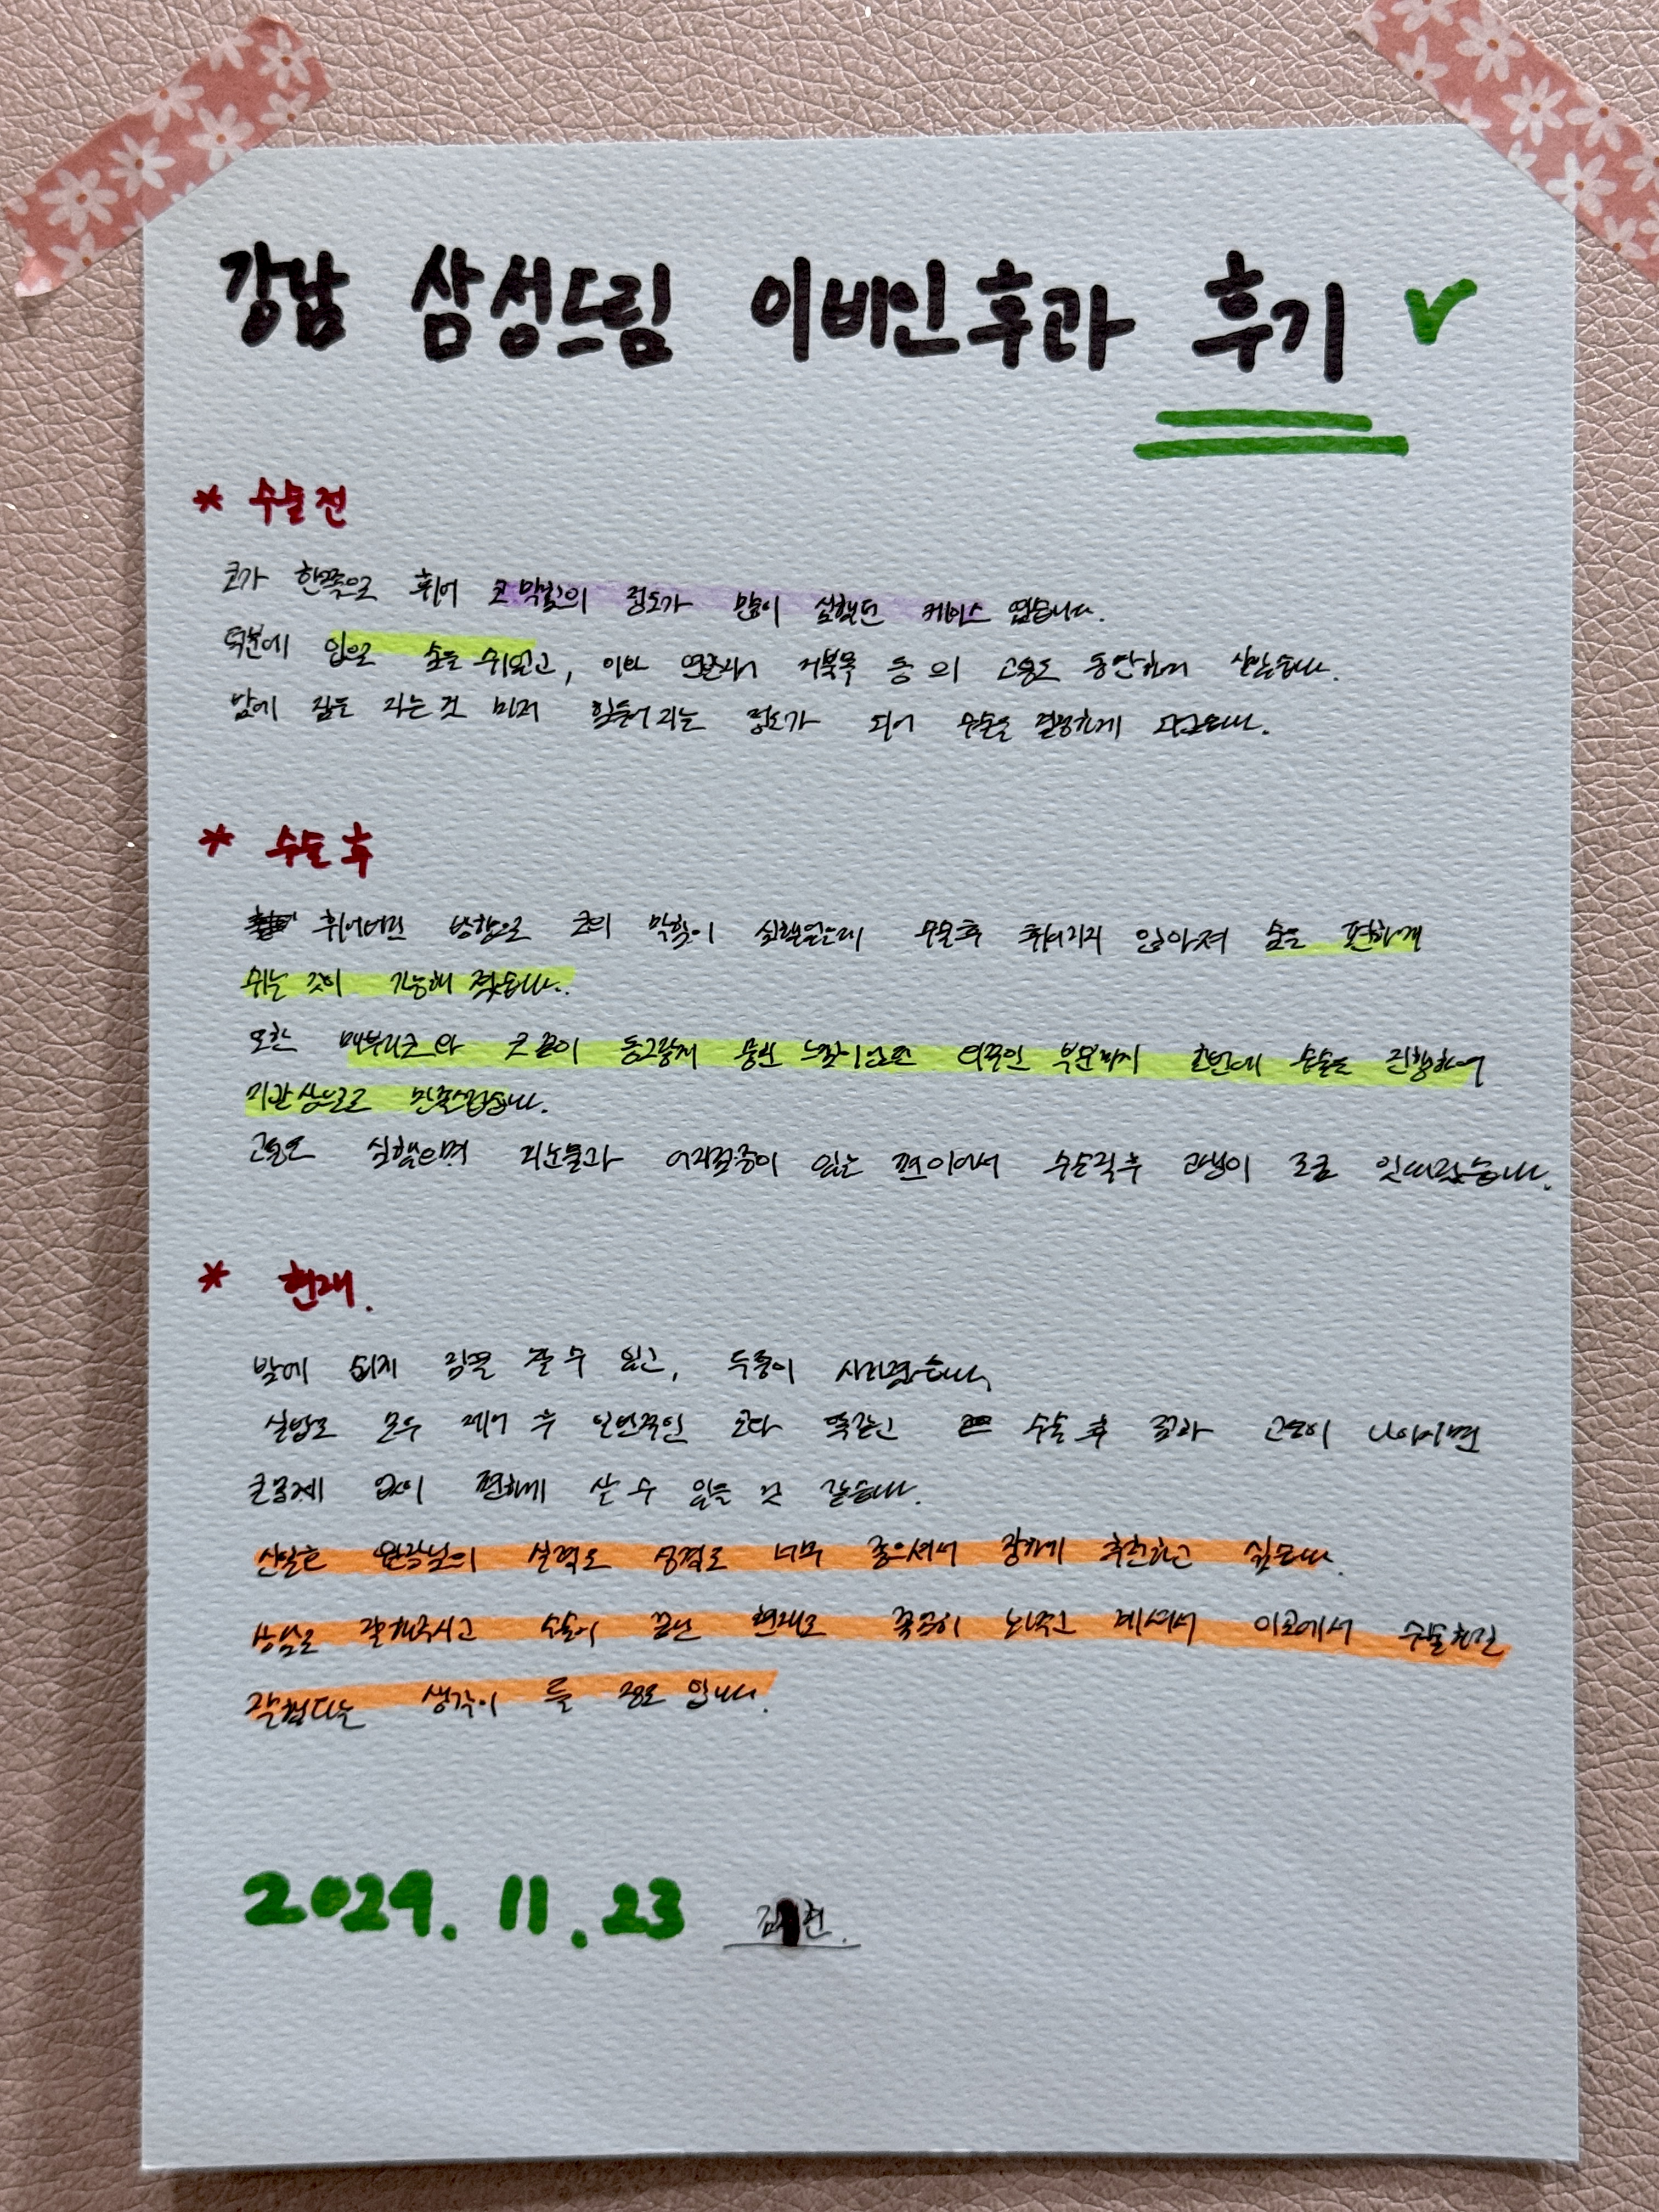 강남 삼성드림 이비인후과 후기 V
* 수술 전
코가 한쪽으로 휘어 코막힘의 정도가 많이 심했던 케이스 였습니다.
덕분에 입으로 숨을 쉬었고, 이와 연관되어 거북목 등의 고통도 동반하며 살았습니다.
밤에 잠을 자는것 마저 힘들어지는 정도가 되어 수술을 결정하게 되었습니다.
* 수술 후
휘어버린 방향으로 코의 막힘이 심했었는데 수술후 휘어지지 않아져 숨을 편하게
쉬는 것이 가능해 졌습니다.
또한 매부리코와 코 끝이 동그랗게 뭉친 느낌이었던 외적인 부분까지 한번에 수술을 진행하여
미관상으로도 만족스럽습니다.
고통도 심했으며 피눈물과 어지럼증이 있는 편이어서 수술직후 고생이 조금 잇따랐습니다.
* 현재.
밤에 쉽게 잠을 잘 수 있고, 두통이 사라졌습니다.
실밥도 모두 제거 후 일반적인 코다 똑같고 수술 후 결과 고통이 나아지면
큰문제 없이 편하게 살 수 있을 것 같습니다.
원장님의 실력도 성격도 너무 좋으셔서 강하게 추천하고 싶습니다.
상담도 잘해주시고 수술이 끝난 현재도 꼼꼼히 봐주고 계셔서 이곳에서 수술하길
잘했다는 생각이 들 정도 입니다.
2024. 11. 23 김 현.